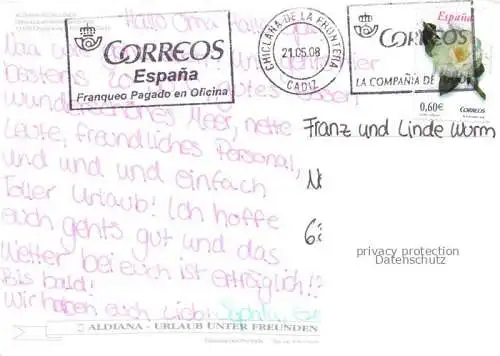 Hallo Oma
CORREOS
España
Franqueo Pagado en Oficina
CHICLANA DE LA FRONTERA
21.05.08
CADIZ
CORREOS
LA COMPAÑIA DE
España
0,60€ CORREOS
Essen
Wunderschönes Meer, nette
Leute, freundliches Personal,
und und und einfach
Toller Urlaub! Ich hoffe
euch gehts gut und das
Wetter bei euch ist erträglich!?
Bis bald!
Wir haben euch Lieb!
Franz und Linde Wurm
63
privacy protection
Datenschutz
ALDIANA - URLAUB UNTER FREUNDEN